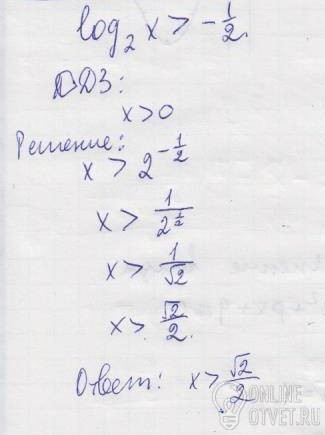 log₂ x > -1/2.
ОДЗ:
x>0
Решение:
x > 2^(-1/2)
x > 1/2^(1/2)
x > 1/√2
x > √2/2.
Ответ: x > √2/2
ONLINE
OTVET.RU